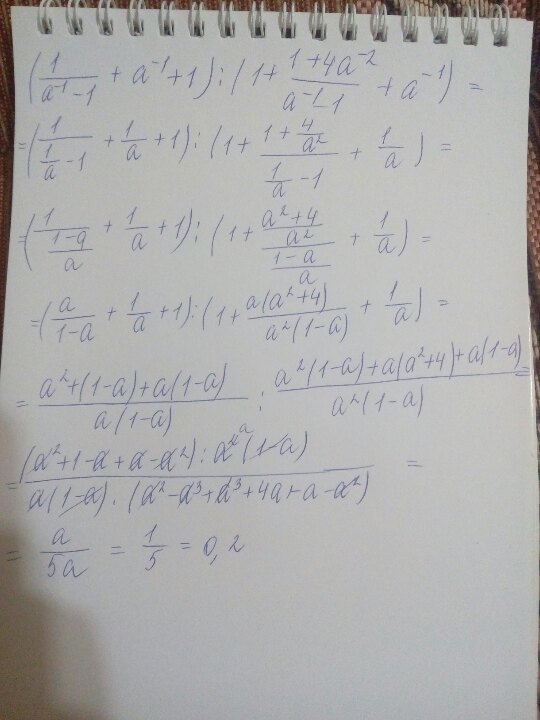 (1/(a⁻¹-1) + a⁻¹+1) : (1+ (1+4a⁻²)/(a⁻¹-1) + a⁻¹) =
=(1/(1/a -1) + 1/a +1) : (1+ (1+ 4/a²)/(1/a -1) + 1/a) =
=(1/((1-a)/a) + 1/a +1) : (1+ ((a²+4)/a²)/((1-a)/a) + 1/a) =
=(a/(1-a) + 1/a +1) : (1+ a(a²+4)/(a²(1-a)) + 1/a) =
= (a²+(1-a)+a(1-a))/(a(1-a)) : (a²(1-a)+a(a²+4)+a(1-a))/(a²(1-a)) =
= ((a²+1-a+a-a²) : a²ᵃ(1-a))/(a(1-a) · (a²-a³+a³+4a+a-a²)) =
= a/5a = 1/5 = 0,2